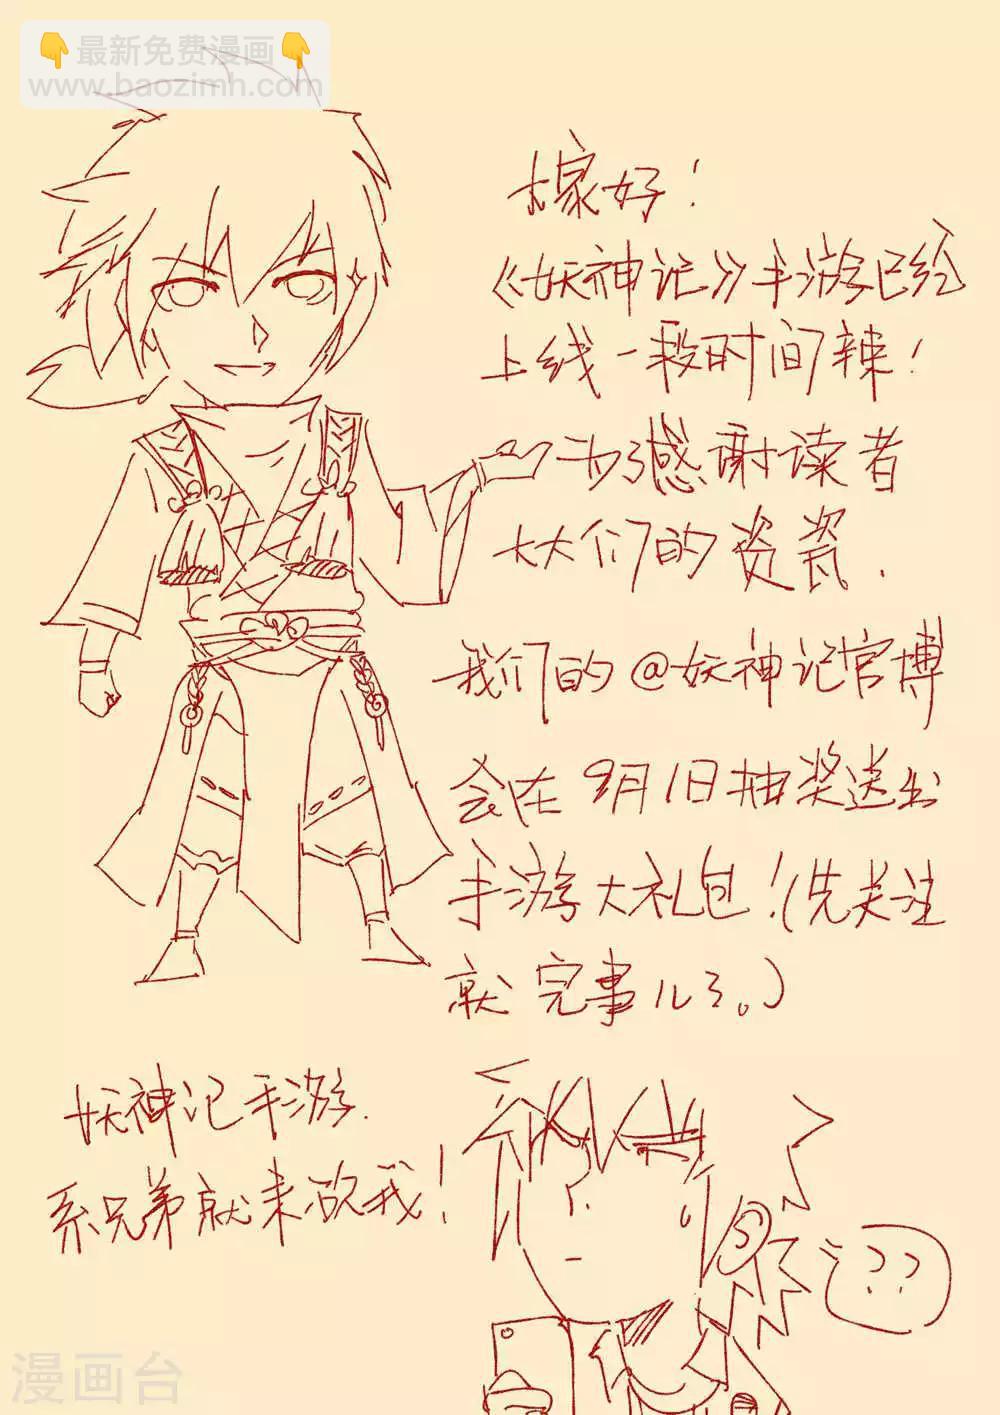 👇最新免费漫画👇
www.baozimh.com
大家好！
《妖神记》手游已经
上线一段时间辣！
为了感谢读者
大大们的资瓷.
我们的@妖神记官博
会在9月1日抽奖送出
手游大礼包！(先关注
就完事儿了。)
妖神记手游.
系兄弟就来砍我！
??
漫画台